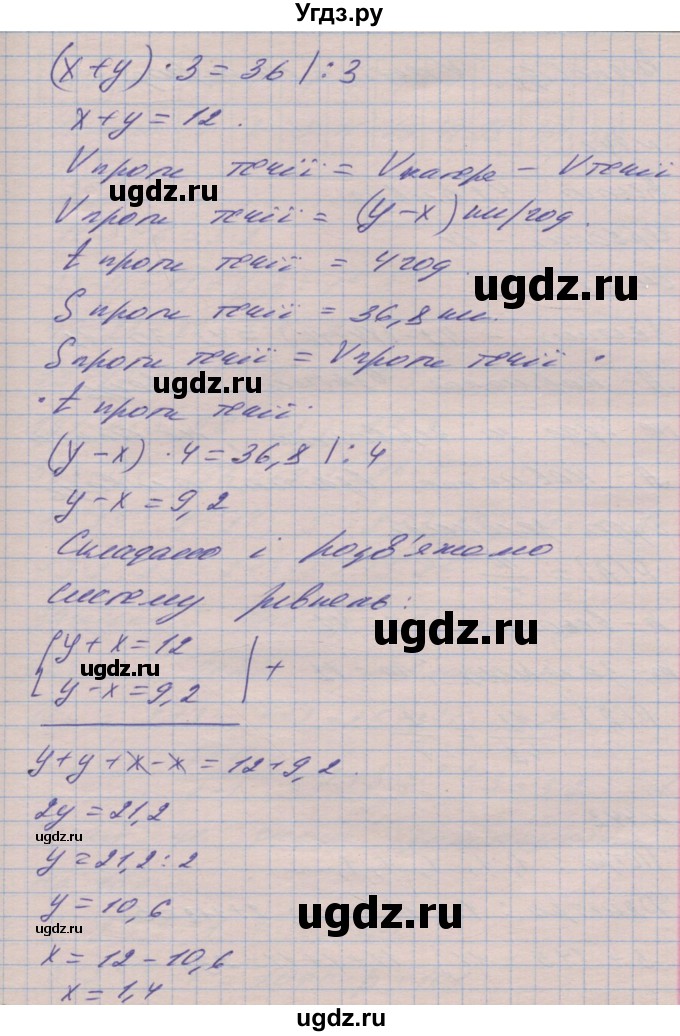 Угдз.ру
(x+y)·3=36|:3
x+y=12.
Vпроти течії = Vкатера – Vтечії
ugdz.ru
Vпроти течії = (y–x) км/год.
t проти течії = 4 год.
ugdz.ru
S проти течії = 36,8 км.
Sпроти течії = Vпроти течії ·
ugdz.ru
· t проти течії.
(y–x)·4=36,8|:4
y–x=9,2
Складемо і розв'яжемо
систему рівнянь:
ugdz.ru
{y+x=12
ugdz.ru
y–x=9,2 | +
y+y+x–x=12+9,2.
2y=21,2
ugdz.ru
y=21,2:2
y=10,6
ugdz.ru
ugdz.ru
x=12–10,6
x=1,4
ugdz.ru